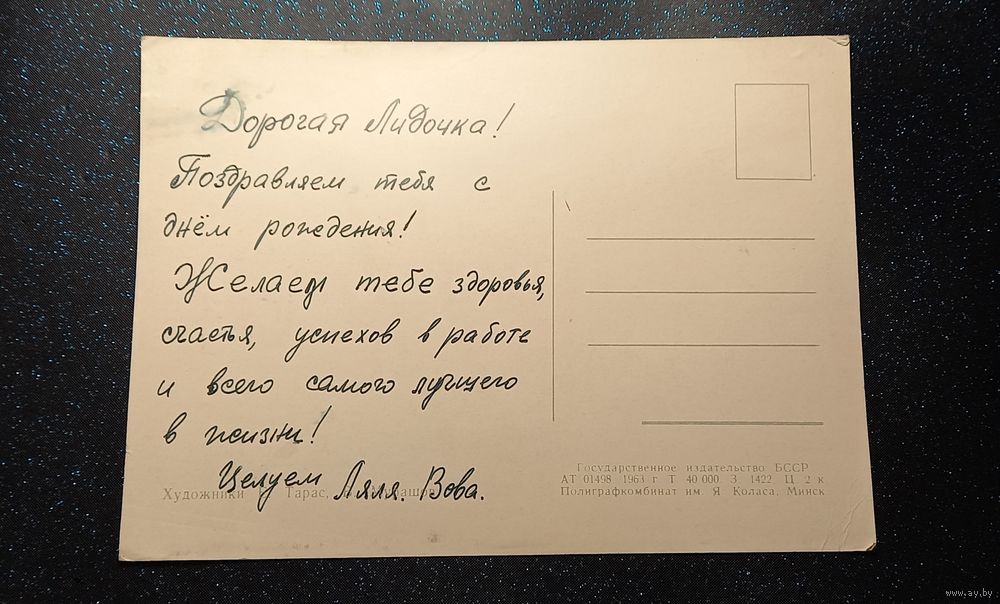 Дорогая Лидочка!
Поздравляем тебя с
днём рождения!
Желаем тебе здоровья,
счастья, успехов в работе
и всего самого лучшего
в жизни!
Целуем Ляля. Вова.
Художники Гарас,
Государственное издательство БССР
АТ 01498 1963 г Т 40 000 З 1422 Ц 2 к
Полиграфкомбинат им. Я Коласа, Минск
www.ay.by